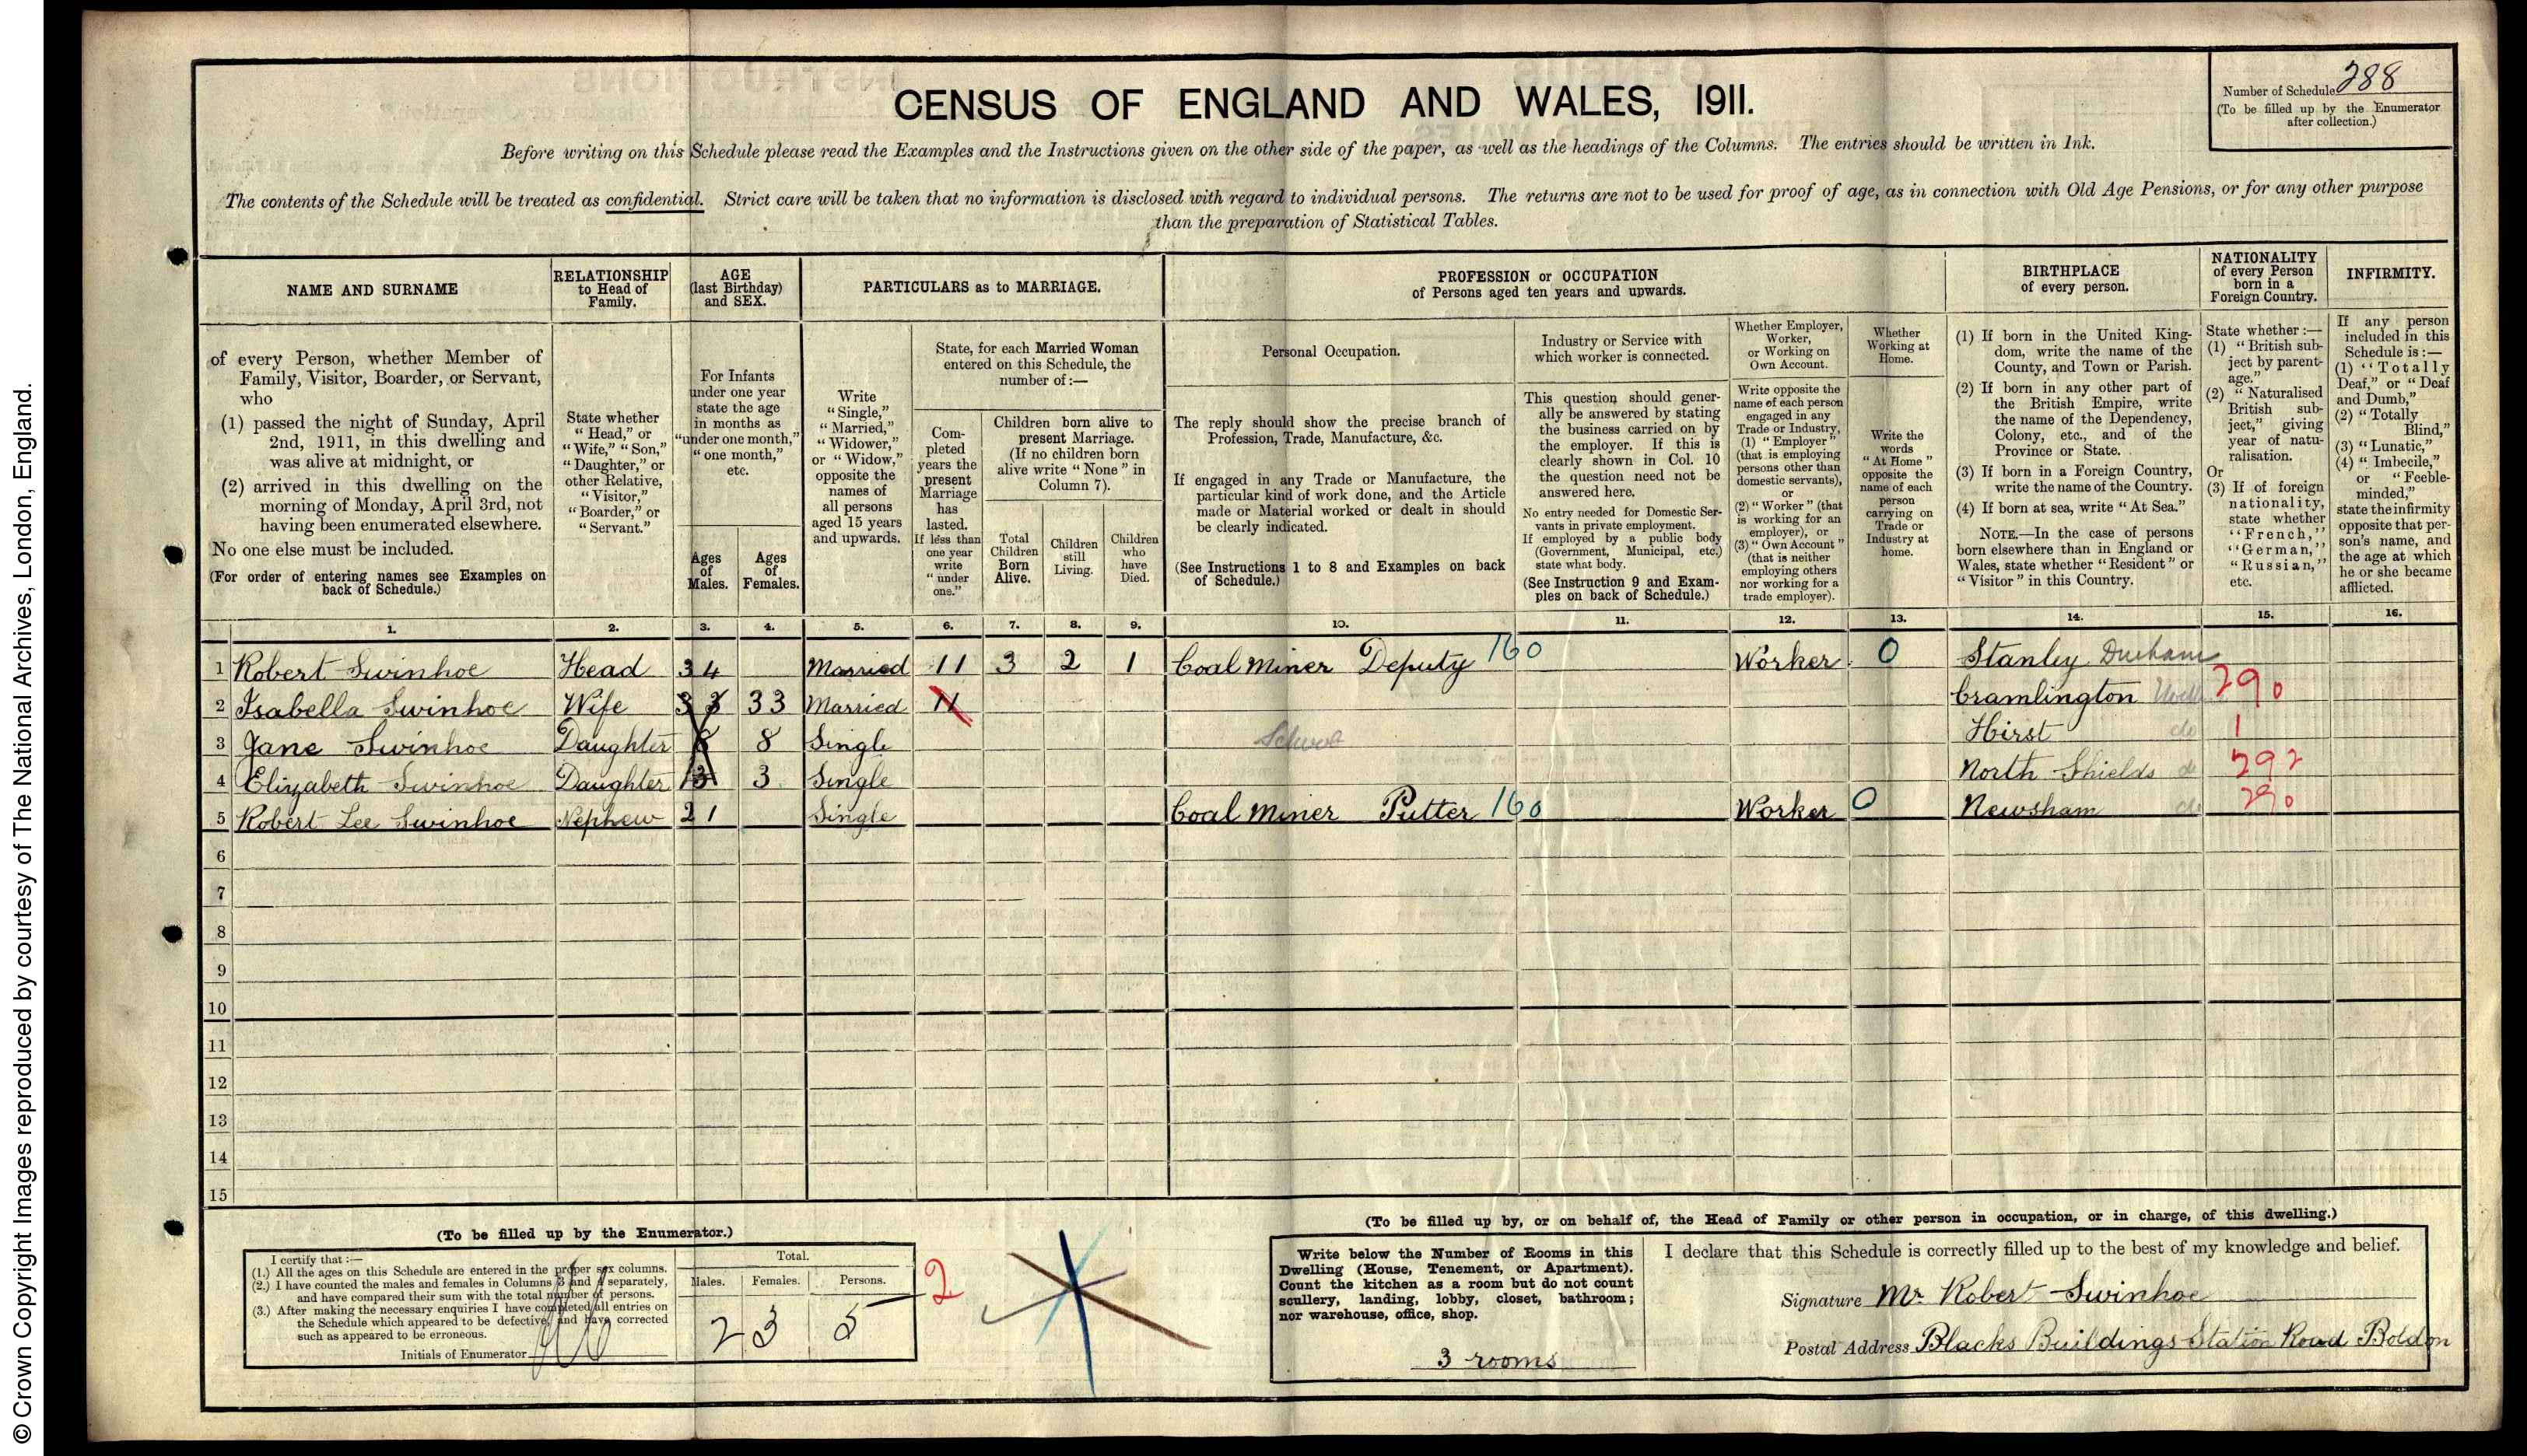 Number of Schedule 288
(To be filled up by the Enumerator
after collection.)
CENSUS OF ENGLAND AND WALES, 1911.
Before writing on this Schedule please read the Examples and the Instructions given on the other side of the paper, as well as the headings of the Columns. The entries should be written in Ink.
The contents of the Schedule will be treated as confidential. Strict care will be taken that no information is disclosed with regard to individual persons. The returns are not to be used for proof of age, as in connection with Old Age Pensions, or for any other purpose
than the preparation of Statistical Tables.
NAME AND SURNAME
of every Person, whether Member of
Family, Visitor, Boarder, or Servant,
who
(1) passed the night of Sunday, April
2nd, 1911, in this dwelling and
was alive at midnight, or
(2) arrived in this dwelling on the
morning of Monday, April 3rd, not
having been enumerated elsewhere.
No one else must be included.
(For order of entering names see Examples on
back of Schedule.)
RELATIONSHIP
to Head of
Family.
State whether
"Head," or
"Wife," "Son,"
"Daughter," or
other Relative,
"Visitor,"
"Boarder," or
"Servant."
AGE
(last Birthday)
and SEX.
For Infants
under one year
state the age
in months as
"under one month,"
"one month,"
etc.
Ages
of
Males.
Ages
of
Females.
PARTICULARS as to MARRIAGE.
Write
"Single,"
"Married,"
"Widower,"
or "Widow,"
opposite the
names of
all persons
aged 15 years
and upwards.
State, for each Married Woman
entered on this Schedule, the
number of :—
Com-
pleted
years the
present
Marriage
has
lasted.
If less than
one year
write
"under
one."
Children born alive to
present Marriage.
(If no children born
alive write "None" in
Column 7).
Total
Children
Born
Alive.
Children
still
Living.
Children
who
have
Died.
PROFESSION or OCCUPATION
of Persons aged ten years and upwards.
Personal Occupation.
The reply should show the precise branch of
Profession, Trade, Manufacture, &c.
If engaged in any Trade or Manufacture, the
particular kind of work done, and the Article
made or Material worked or dealt in should
be clearly indicated.
(See Instructions 1 to 8 and Examples on back
of Schedule.)
Industry or Service with
which worker is connected.
This question should gener-
ally be answered by stating
the business carried on by
the employer. If this is
clearly shown in Col. 10
the question need not be
answered here.
No entry needed for Domestic Ser-
vants in private employment.
If employed by a public body
(Government, Municipal, etc.)
state what body.
(See Instruction 9 and Exam-
ples on back of Schedule.)
Whether Employer,
Worker,
or Working on
Own Account.
Write opposite the
name of each person
engaged in any
Trade or Industry,
(1) "Employer"
(that is employing
persons other than
domestic servants),
or
(2) "Worker" (that
is working for an
employer), or
(3) "Own Account"
(that is neither
employing others
nor working for a
trade employer).
Whether
Working at
Home.
Write the
words
"At Home"
opposite the
name of each
person
carrying on
Trade or
Industry at
home.
BIRTHPLACE
of every person.
(1) If born in the United King-
dom, write the name of the
County, and Town or Parish.
(2) If born in any other part of
the British Empire, write
the name of the Dependency,
Colony, etc., and of the
Province or State.
(3) If born in a Foreign Country,
write the name of the Country.
(4) If born at sea, write "At Sea."
NOTE.—In the case of persons
born elsewhere than in England or
Wales, state whether "Resident" or
"Visitor" in this Country.
NATIONALITY
of every Person
born in a
Foreign Country.
State whether :—
(1) "British sub-
ject by parent-
age."
(2) "Naturalised
British sub-
ject," giving
year of natu-
ralisation.
Or
(3) If of foreign
nationality,
state whether
"French,"
"German,"
"Russian,"
etc.
INFIRMITY.
If any person
included in this
Schedule is :—
(1) "Totally
Deaf," or "Deaf
and Dumb,"
(2) "Totally
Blind,"
(3) "Lunatic,"
(4) "Imbecile,"
or "Feeble-
minded,"
state the infirmity
opposite that per-
son's name, and
the age at which
he or she became
afflicted.
1. 2. 3. 4. 5. 6. 7. 8. 9. 10. 11. 12. 13. 14. 15. 16.
1 Robert Swinhoe Head 34 Married 11 3 2 1 Coal Miner Deputy 160 Worker 0 Stanley Durham
2 Isabella Swinhoe Wife 33 33 Married 11 Cramlington 290
3 Jane Swinhoe Daughter 8 8 Single School Hirst do 1
4 Elizabeth Swinhoe Daughter 3 3 Single North Shields do 292
5 Robert Lee Swinhoe Nephew 21 Single Coal Miner Putter 160 Worker 0 Newsham do 290
6
7
8
9
10
11
12
13
14
15
(To be filled up by the Enumerator.)
I certify that :—
(1.) All the ages on this Schedule are entered in the proper sex columns.
(2.) I have counted the males and females in Columns 3 and 4 separately,
and have compared their sum with the total number of persons.
(3.) After making the necessary enquiries I have completed all entries on
the Schedule which appeared to be defective, and have corrected
such as appeared to be erroneous.
Initials of Enumerator
Total.
Males. Females. Persons.
2 3 5 2
(To be filled up by, or on behalf of, the Head of Family or other person in occupation, or in charge, of this dwelling.)
Write below the Number of Rooms in this
Dwelling (House, Tenement, or Apartment).
Count the kitchen as a room but do not count
scullery, landing, lobby, closet, bathroom;
nor warehouse, office, shop.
3 rooms
I declare that this Schedule is correctly filled up to the best of my knowledge and belief.
Signature Mr Robert Swinhoe
Postal Address Blacks Buildings Station Road Boldon
© Crown Copyright Images reproduced by courtesy of The National Archives, London, England.